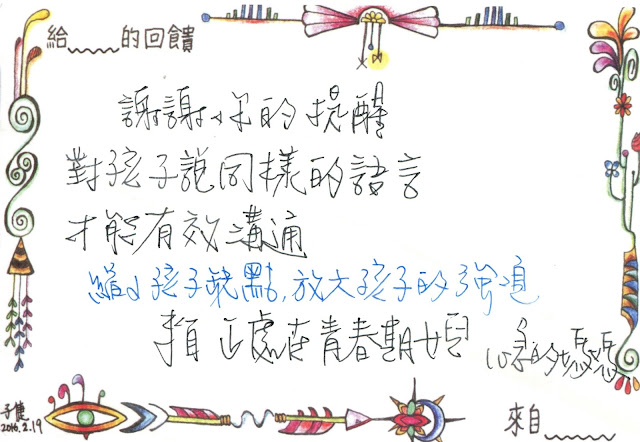 給﹏﹏的回饋
謝謝你的提醒
對孩子說同樣的語言
才能有效溝通
縮小孩子缺點，放大孩子的強項
正處在青春期女兒
心急的媽媽
來自﹏﹏
子健
2016.2.19